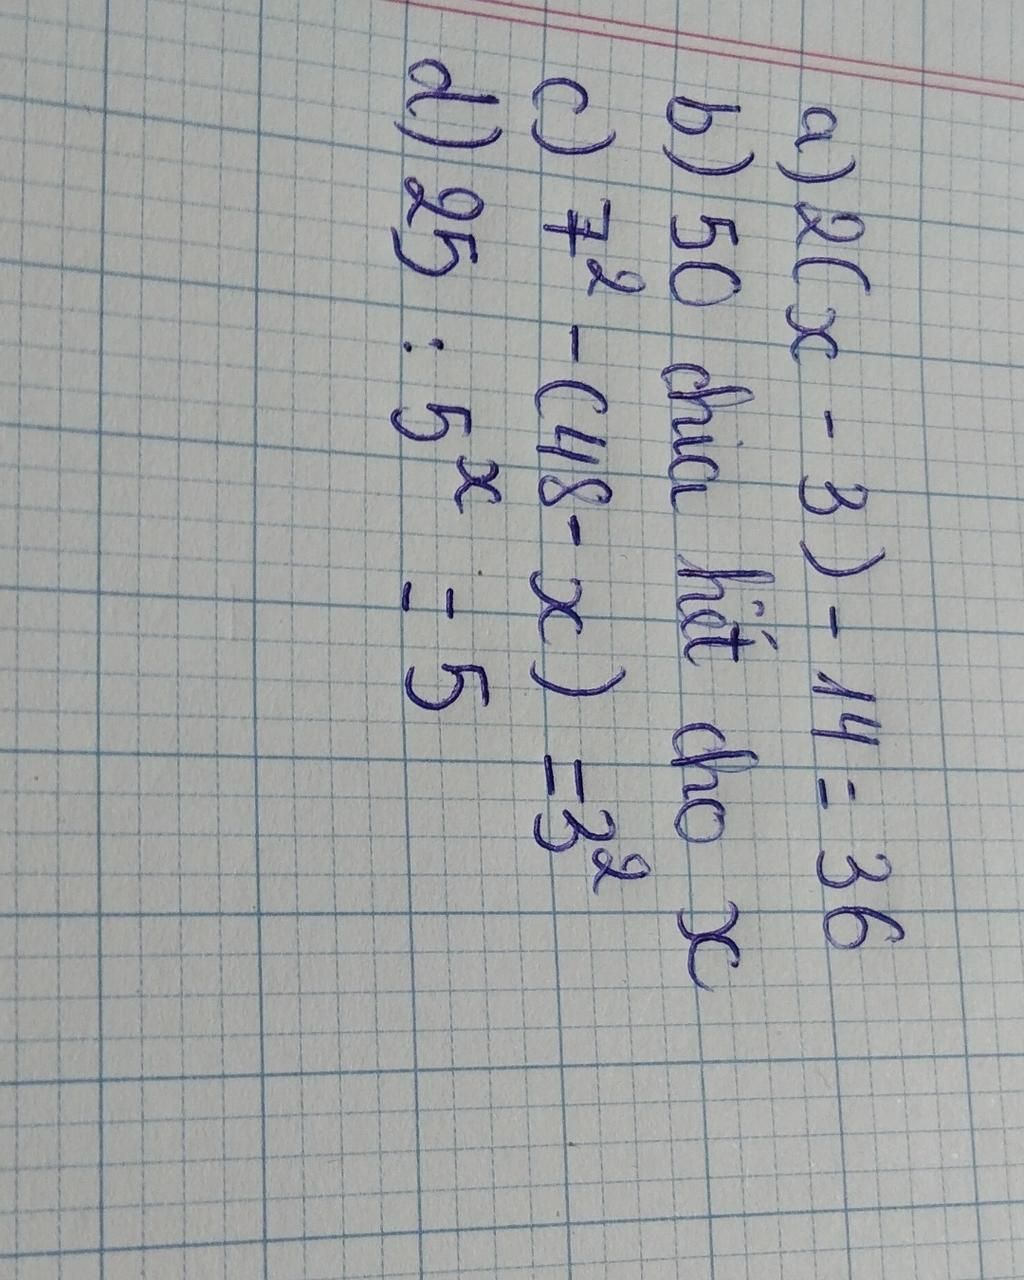 a) 2(x - 3) - 14 = 36
b) 50 chia hết cho x
c) 7² - (48 - x) = 3²
d) 25 : 5ˣ = 5